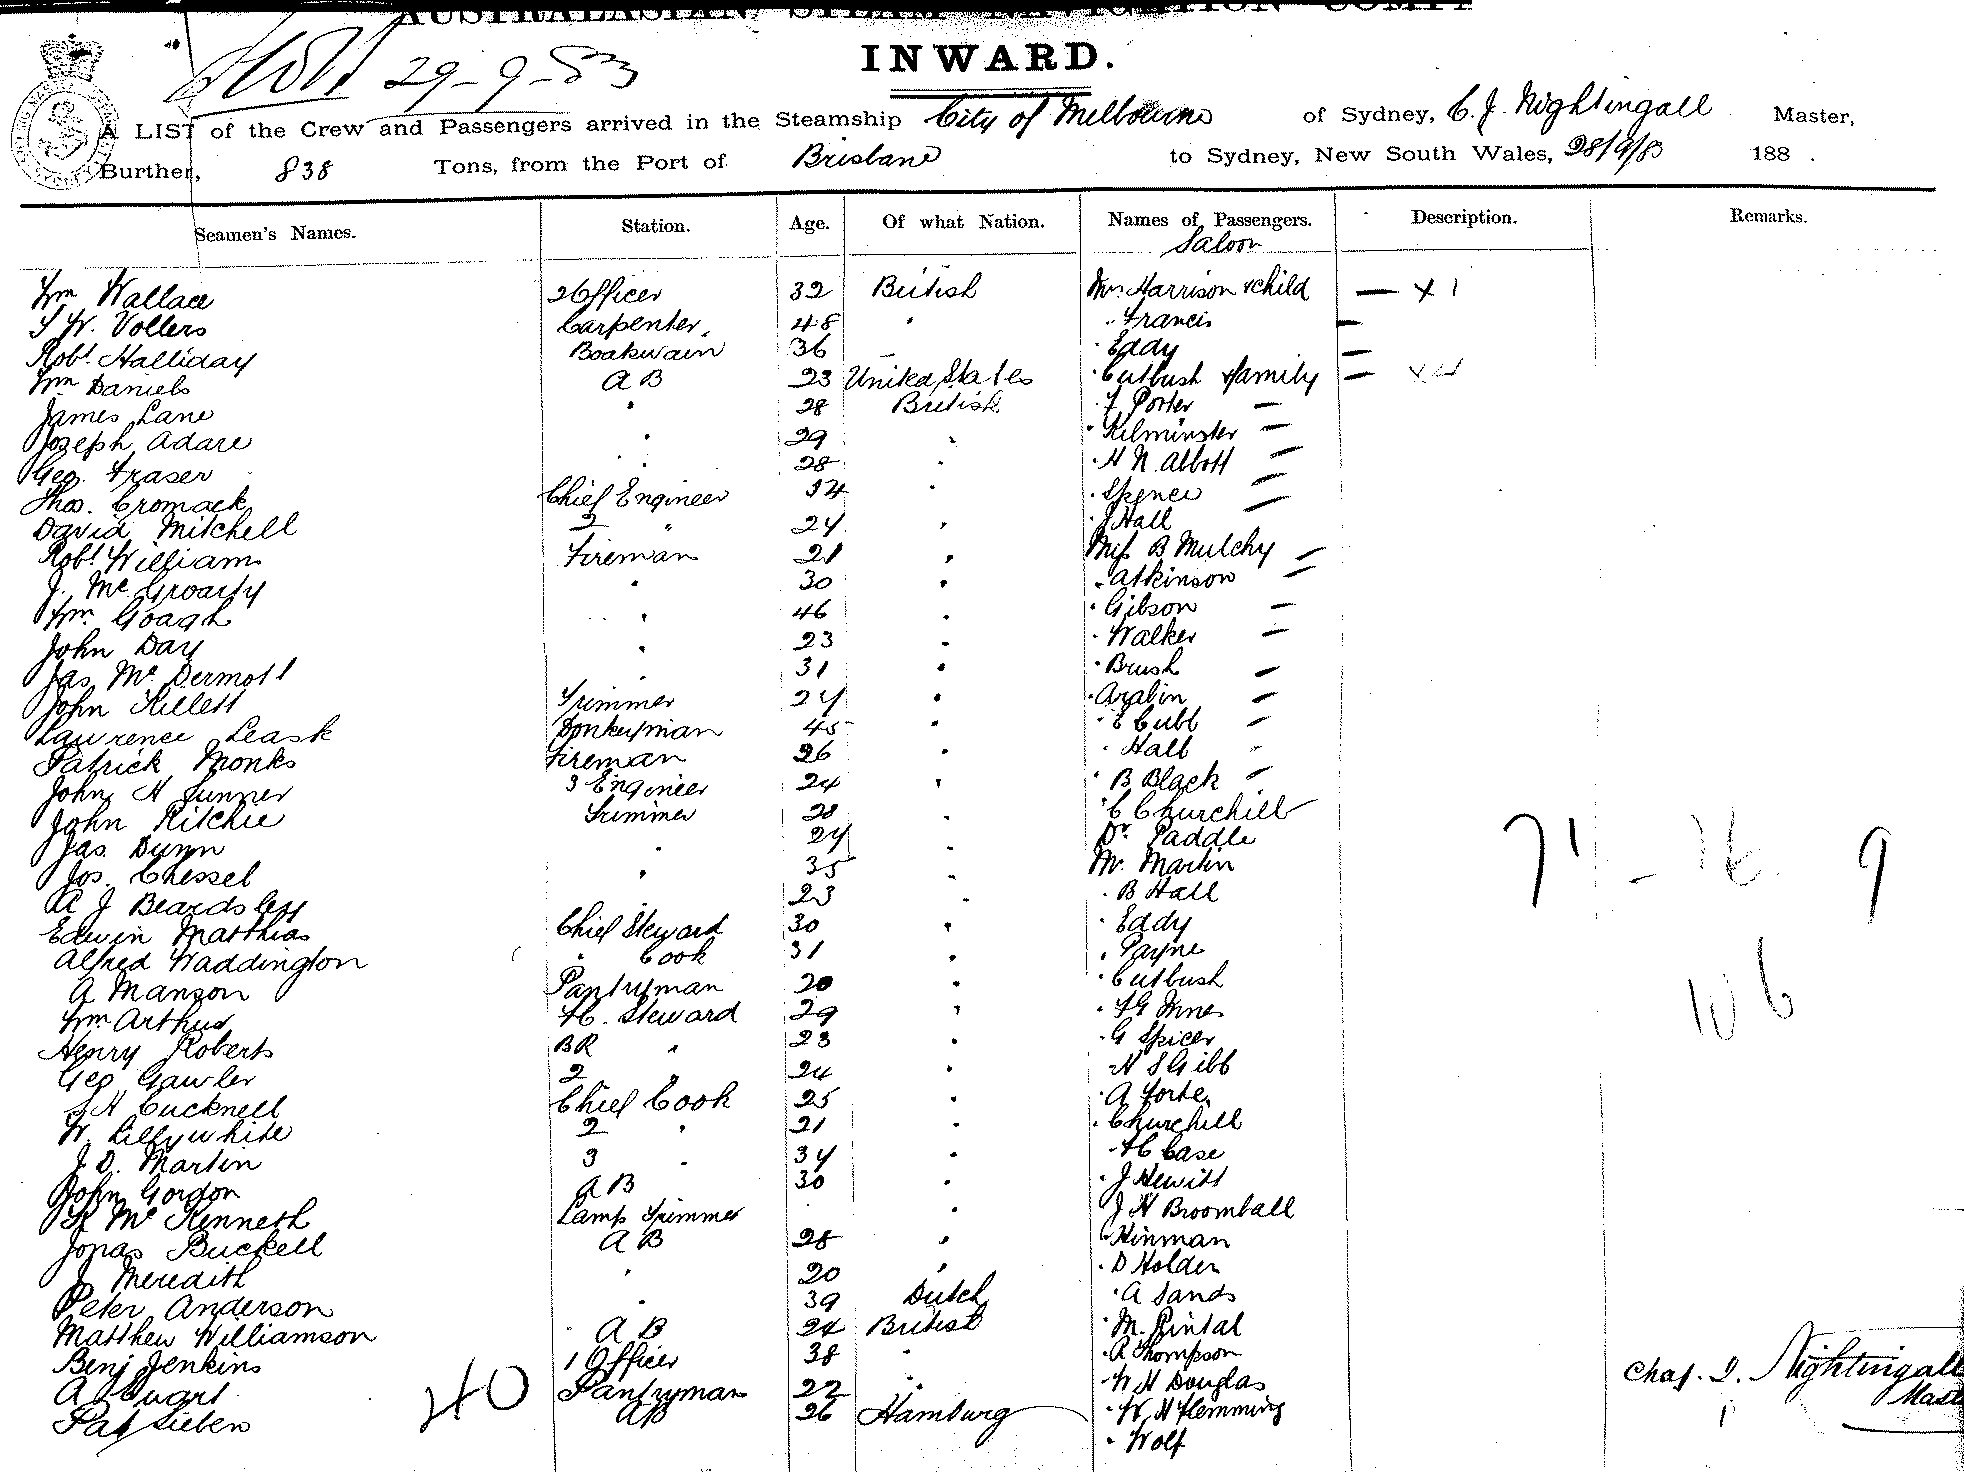 AUSTRALASIAN STEAM NAVIGATION COMP
INWARD.
29-9-83
A LIST of the Crew and Passengers arrived in the Steamship City of Melbourne of Sydney, C. J. Nightingall Master,
Burthen, 838 Tons, from the Port of Brisbane to Sydney, New South Wales, 28/9/83 188 .
Seamen's Names. Station. Age. Of what Nation. Names of Passengers. Description. Remarks.
Saloon
Wm Wallace 2 Officer 32 British Mrs Harrison & child — X 1
W. Vollers Carpenter 48 " Francis —
Robt Halliday Boatswain 36 " Eddy —
Wm Daniels A B 23 United States " Cutbush & family —
James Lane " 28 British " Porter —
Joseph Adare " 29 " " Kilminster —
Geo. Fraser " 28 " " H N. Abbott —
Thos. Cromack Chief Engineer 34 " " Spence —
David Mitchell 2 " 24 " " J Hall —
Robt William Fireman 21 " Miss B Mulchy —
J. McGroarty " 30 " " Atkinson —
Wm. Goagh " 46 " " Gibson —
John Day " 23 " " Walker —
Jas McDermott " 31 " " Brush —
John Killett Trimmer 24 " " Arabin —
Lawrence Leask Donkeyman 45 " " E Cubb —
Patrick Monks Fireman 26 " " Hall "
John H Sunner 3 Engineer 24 " " B Black —
John Ritchie Trimmer 20 " " C Churchill
Jas Dunn " 24 " Dr. Paddle
Jos. Chessel " 35 " Mr. Martin
A J Beardsley 23 " " B Hall
Edwin Matthias Chief Steward 30 " " Eddy
Alfred Waddington " Cook 31 " " Payne
A Manson Pantryman 20 " " Cutbush
Wm Arthur Steward 29 " " Innes
Henry Roberts BR " 23 " " G Spicer
Geo Gawler 2 " 24 " " N S Gibb
H Cucknell Chief Cook 25 " " A Forbes
W. Lillywhite 2 " 21 " " Churchill
J. D. Martin 3 " 34 " " H C Case
John Gordon A B 30 " " J Hewitt
McKenneth Lamp Trimmer " J H Broomball
Jonas Buckell A B 28 " " Hinman
J. Meredith " 20 " " D Holden
Peter Anderson " 39 Dutch " A Sands
Matthew Williamson A B 24 British " M. Rintal
Benj Jenkins 1 Officer 38 " " A Thompson
A Pantryman 22 " " W H Douglas
Pat Sieben AB 26 Hamburg " W. H Flemming
" Wolf
40
71 9
106
Chas. J. Nightingall
Mast